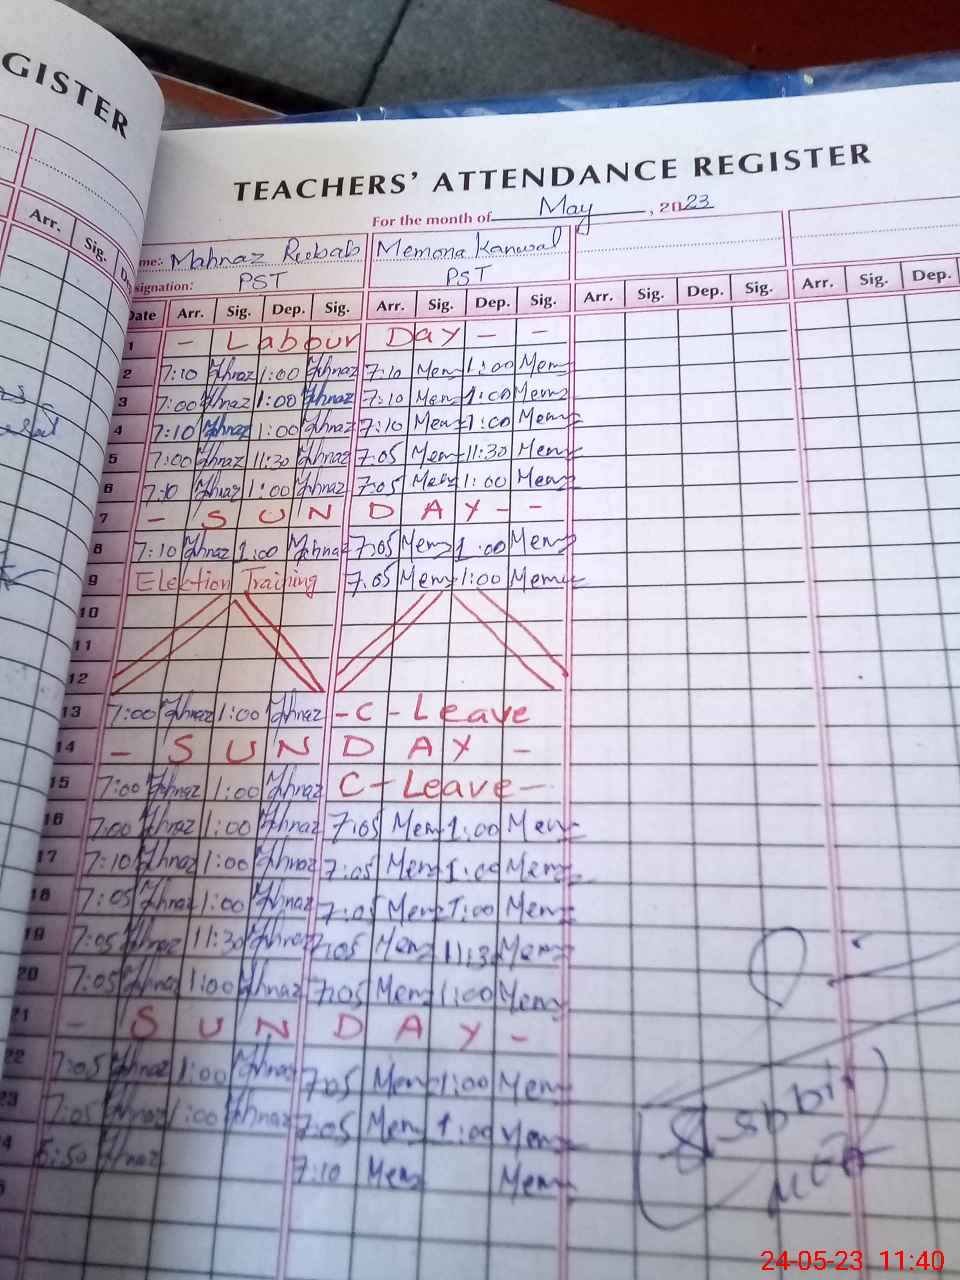 GISTER
TEACHERS' ATTENDANCE REGISTER
For the month of May, 2023
me: Mahnaz Reebab Memona Kanwal
signation: PST PST
Arr. Sig. D
Date Arr. Sig. Dep. Sig. Arr. Sig. Dep. Sig. Arr. Sig. Dep. Sig. Arr. Sig. Dep.
1 - Labour Day - -
2 7:10 1:00 7:10 Mem 1:00 Mem
3 7:00 1:00 7:10 Mem 1:00 Mem
4 7:10 1:00 7:10 Mem 1:00 Mem
5 7:00 11:30 7:05 Mem 11:30 Mem
6 7:10 1:00 7:05 Mem 1:00 Mem
7 - SUNDAY - -
8 7:10 1:00 7:05 Mem 1:00 Mem
9 Elektion Training 7:05 Mem 1:00 Mem
10
11
12
13 7:00 1:00 - C - Leave
14 - SUNDAY -
15 7:00 1:00 C - Leave -
16 7:00 1:00 7:05 Mem 1:00 Mem
17 7:10 1:00 7:05 Mem 1:00 Mem
18 7:05 1:00 7:05 Mem 1:00 Mem
19 7:05 11:30 7:05 Mem 11:30 Mem
20 7:05 1:00 7:05 Mem 1:00 Mem
21 - SUNDAY -
22 7:05 1:00 7:05 Mem 1:00 Mem
23 7:05 1:00 7:05 Mem 1:00 Mem
4 6:50 7:10 Mem Mem
5
24-05-23 11:40